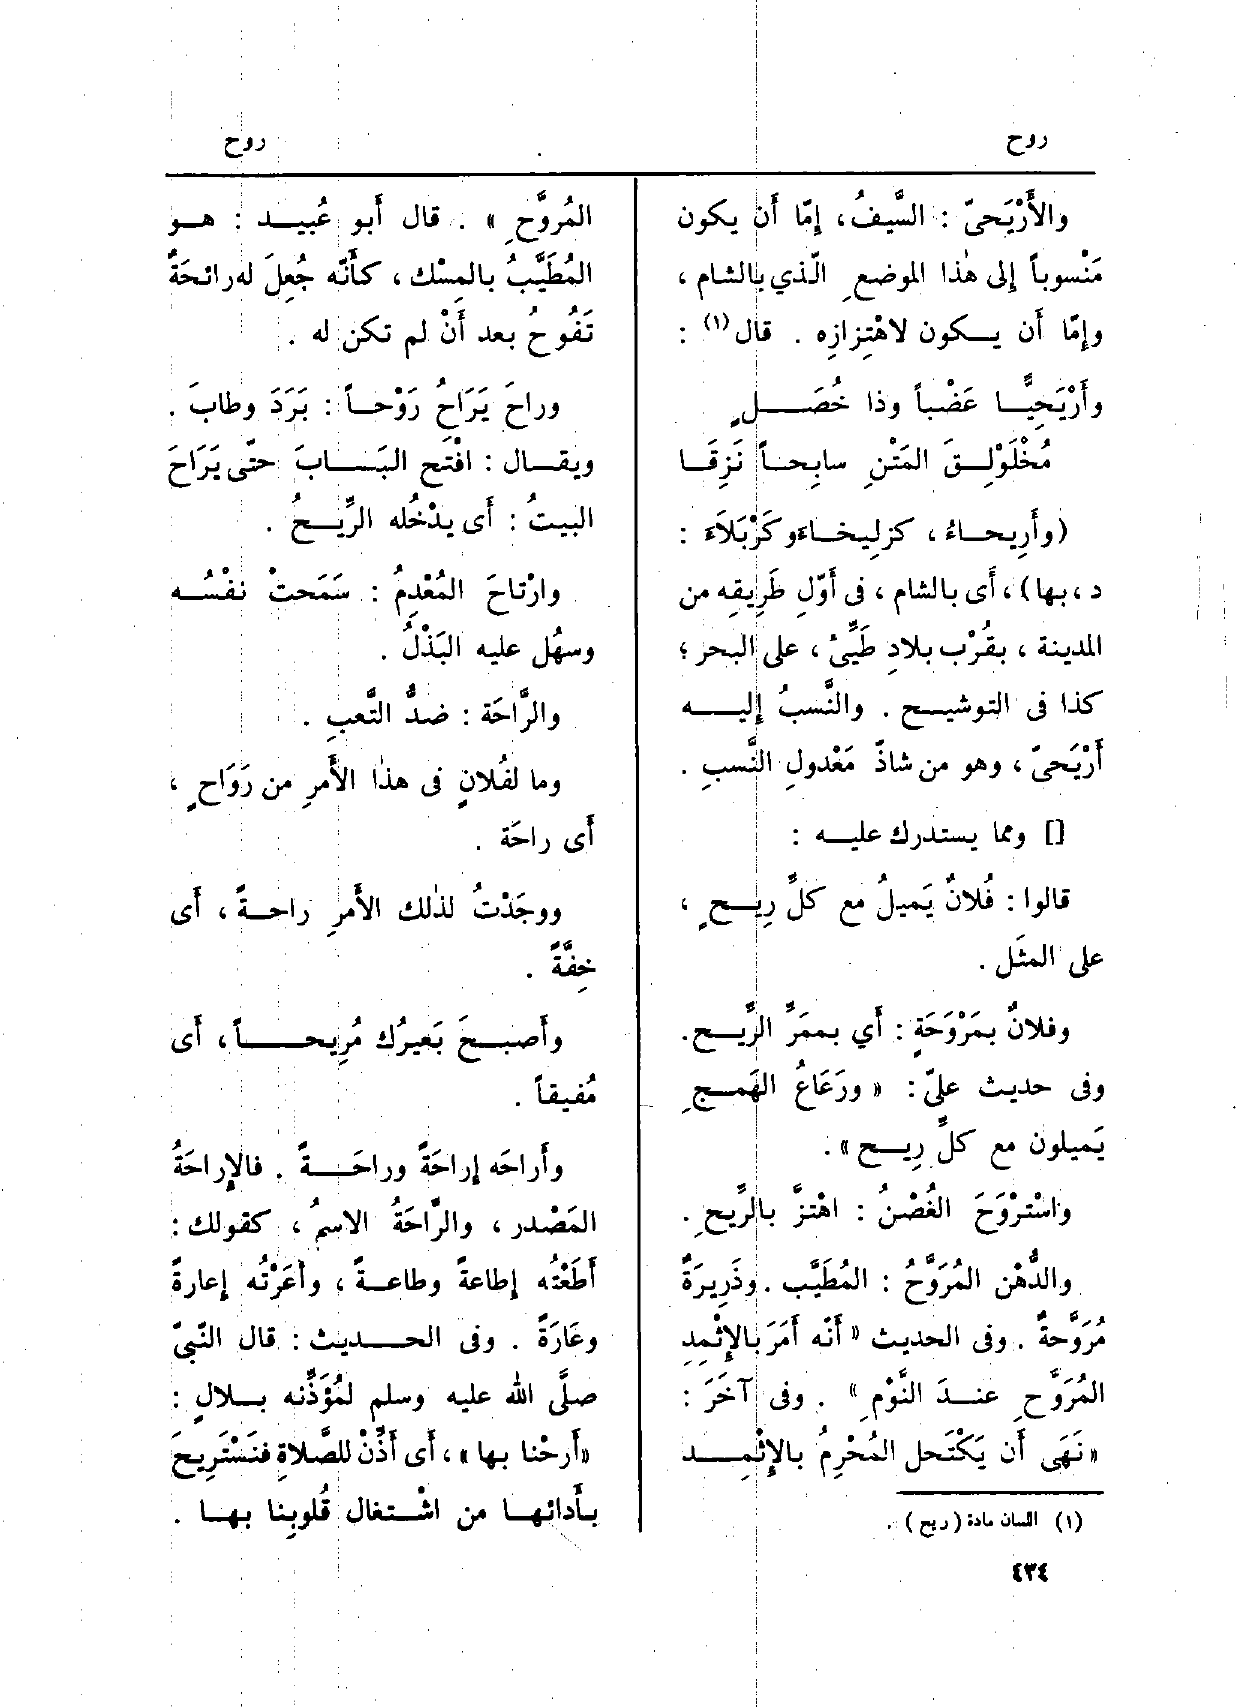 روح
روح
والأَرْيَحىّ : السَّيفُ، إمّا أَن يكون
مَنْسوباً إلى هٰذا الموضعِ الّذي بالشام ،
وإمّا أَن يـكون لاهْتِزازِه . قال(١) :
وأَرْيَحِيًّـا عَضْباً وذا خُصَـلٍ
مُخْلَوْلِـقَ المَتْنِ سابِحـاً نَزِقَـا
(وأَرِيحـاءُ ، كزلِيخـاءَ وكَرْبَلاَءَ :
د ، بها) ، أَى بالشام ، فى أَوّلِ طَرِيقِه من
المدينة ، بقُرْب بلادِ طَيِّئٍ ، على البحر ؛
كذا فى التوشيـح . والنَّسبُ إليـه
أَرْيَحىّ ، وهو من شاذّ مَعْدولِ النَّسبِ .
[] ومما يستدرك عليـه :
قالوا : فُلانٌ يَميلُ مع كلِّ رِيـحٍ ،
على المثَل .
وفلانٌ بمَرْوَحَةٍ : أَي بممَرِّ الرِّيـح.
وفى حديث علىّ : « ورَعَاعُ الهَمـجِ
يَميلون مع كلِّ رِيـح » .
واسْتَرْوَحَ الغُصْنُ : اهْتزَّ بالرِّيحِ .
والدُّهْن المُرَوَّحُ : المُطَيَّب . وذَرِيرَةٌ
مُرَوَّحةٌ . وفى الحديث « أَنّه أَمَرَ بالإِثْمِدِ
المُرَوَّحِ عنـدَ النَّوْمِ » . وفى آخَرَ :
« نَهَى أَن يَكْتَحل المُحْرِمُ بالإِثْمِـد
(١) اللسان مادة ( ريح ) .
٤٣٤
المُرَوَّحِ » . قال أَبو عُبيـد : هـو
المُطَيَّبُ بالمِسْك ، كأَنّه جُعِلَ له رائحَةٌ
تَفُوحُ بعد أَنْ لم تكن له .
وراحَ يَرَاحُ رَوْحـاً : بَرَدَ وطابَ .
ويقـال : افْتَح البَـابَ حتّى يَرَاحَ
البيتُ : أَى يدْخُله الرِّيـحُ .
وارْتاحَ المُعْدِمُ : سَمَحتْ نفْسُـه
وسهُل عليه البَذْلُ .
والرَّاحَة : ضدُّ التَّعبِ .
وما لفُلانٍ فى هذٰا الأَمرِ من رَوَاحٍ ،
أَى راحَة .
ووجَدْتُ لذٰلك الأَمرِ راحـةً ، أَى
خِفَّةً .
وأَصبـحَ بَعيرُك مُرِيحـاً ، أَى
مُفيقاً .
وأَراحَه إراحَةً وراحَـةً . فالإراحَةُ
المَصْدر ، والرَّاحَةُ الاسمُ ، كقولك :
أَطَعْتُه إطاعةً وطاعـةً ، وأَعَرْتُه إعارةً
وعَارَةً . وفى الحـديث : قال النّبىّ
صلَّى الله عليه وسلم لمُؤذِّنه بـلالٍ :
«أَرِحْنا بها » ، أَى أَذِّنْ للصَّلاةِ فنَسْتَرِيحَ
بأَدائهـا من اشْـتغال قُلوبِنا بهـا .